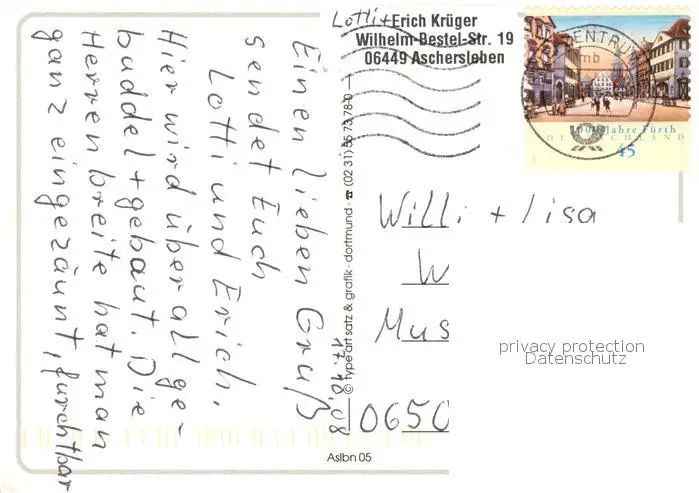 Lotti +
Erich Krüger
Wilhelm-Bestel-Str. 19
06449 Aschersleben
ZENTRUM
mb
1000 Jahre Fürth
DEUTSCHLAND
45
17.10.08
Einen lieben Gruß
sendet Euch
Lotti und Erich.
Hier wird überall ge-
buddel + gebaut. Die
Herrenbreite hat man
ganz eingezäunt, furchtbar
© type art satz & grafik · dortmund · ☎ (02 31) 55 73 78-0
Willi + Lisa
W
Mus
0650
privacy protection
Datenschutz
Aslbn 05